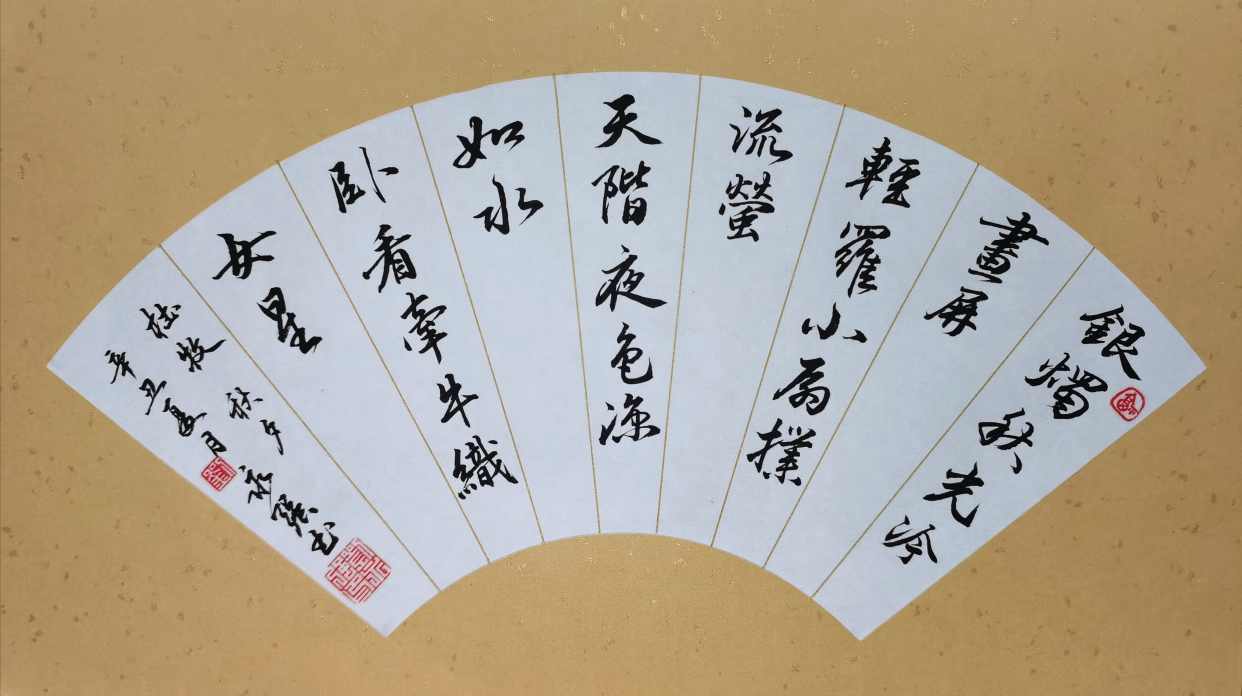 銀燭秋光冷
畫屏
輕羅小扇撲
流螢
天階夜色涼
如水
卧看牽牛織
女星
杜牧 秋夕 强书
辛丑夏月